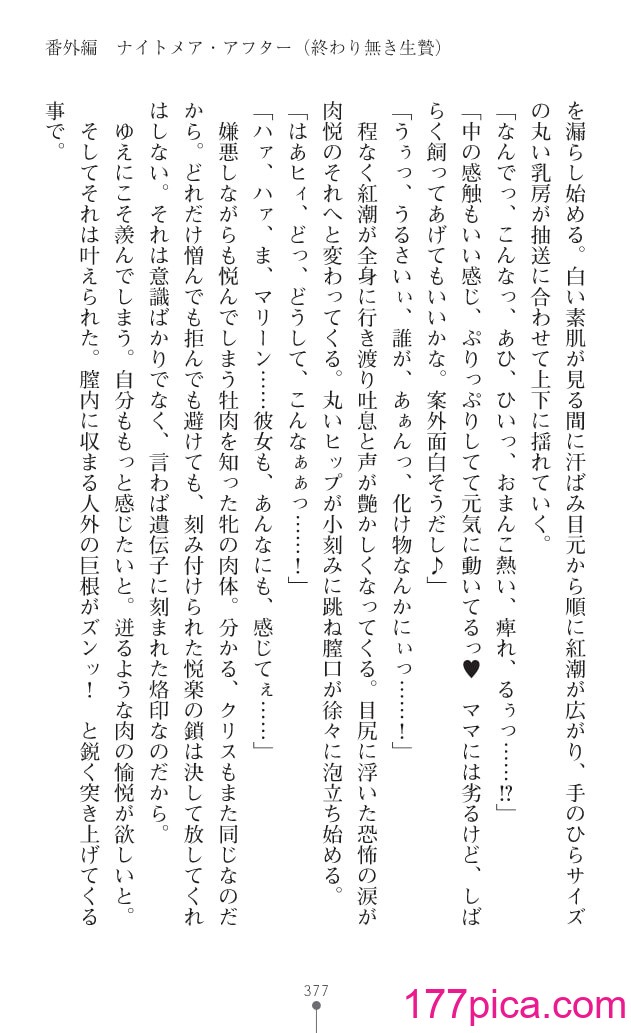 番外編　ナイトメア・アフター（終わり無き生贄）
を漏らし始める。白い素肌が見る間に汗ばみ目元から順に紅潮が広がり、手のひらサイズ
の丸い乳房が抽送に合わせて上下に揺れていく。
「なんでっ、こんなっ、あひ、ひいっ、おまんこ熱い、痺れ、るぅっ……!?」
「中の感触もいい感じ、ぷりっぷりしてて元気に動いてるっ♥　ママには劣るけど、しば
らく飼ってあげてもいいかな。案外面白そうだし♪」
「うぅっ、うるさいぃ、誰が、あぁんっ、化け物なんかにぃっ……！」
程なく紅潮が全身に行き渡り吐息と声が艶かしくなってくる。目尻に浮いた恐怖の涙が
肉悦のそれへと変わってくる。丸いヒップが小刻みに跳ね膣口が徐々に泡立ち始める。
「はあヒィ、どっ、どうして、こんなぁぁっ……！」
「ハァ、ハァ、ま、マリーン……彼女も、あんなにも、感じてぇ……」
嫌悪しながらも悦んでしまう牡肉を知った牝の肉体。分かる、クリスもまた同じなのだ
から。どれだけ憎んでも拒んでも避けても、刻み付けられた悦楽の鎖は決して放してくれ
はしない。それは意識ばかりでなく、言わば遺伝子に刻まれた烙印なのだから。
ゆえにこそ羨んでしまう。自分ももっと感じたいと。迸るような肉の愉悦が欲しいと。
そしてそれは叶えられた。膣内に収まる人外の巨根がズンッ！　と鋭く突き上げてくる
事で。
377
177pica.com